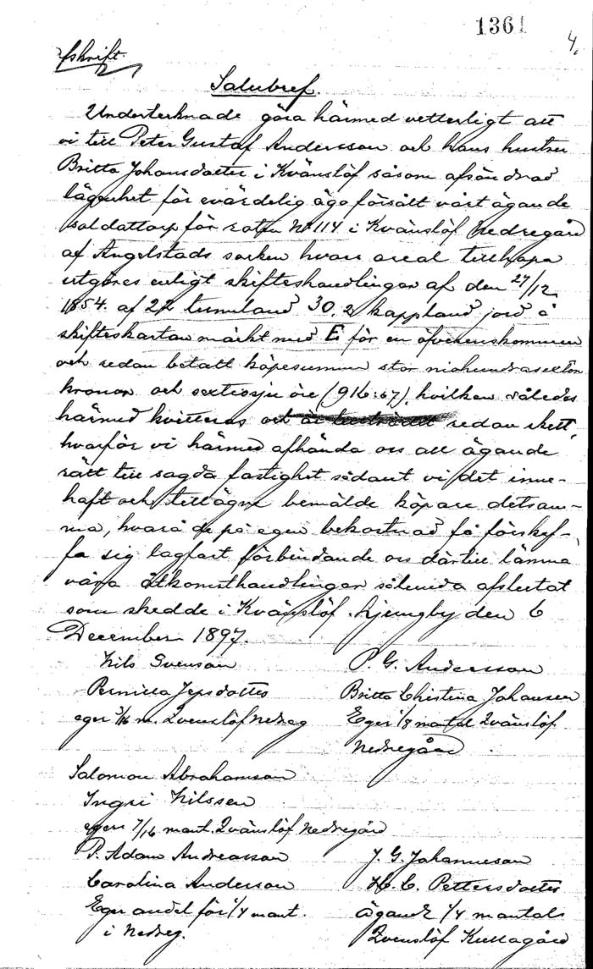 1361
4.
Afskrift.
Salubref.
Undertecknade göra härmed vetterligt att
vi till Peter Gustaf Andersson och hans hustru
Britta Johansdotter i Kvänslöf såsom afsöndrad
lägenhet för evärdelig ägo försålt vårt ägande
soldattorp för roten No 114 i Kvänslöf Nedregård
af Angelstads socken hvars areal tillhopa
utgöres enligt skifteshandlingar af den 27/12
1854. af 22 tunnland 30,2 kappland jord å
skifteskartan märkt med E för en öfverenskommen
och redan betalt köpesumma stor niohundrasexton
kronor och sextiosju öre (916:67), hvilken således
härmed kvitteras och är redan skett,
hvarför vi härmed afhända oss all ägande
rätt till sagda fastighet sådant vi det inne-
haft och tillägna bemälde köpare detsam-
ma, hvarå de på egen bekostnad få förskaf-
fa sig lagfart förbindande oss därtill lämna
våra åtkomsthandlingar sålunda afslutat
som skedde i Kvänslöf. Ljungby den 6
December 1897.
Nils Svenson
P. G. Andersson
Pernilla Jepsdotter
Britta Christina Johansen
eger 3/16 m. Qvenslöf Nedreg
Eger 1/8 mantal Qvänslöf
Nedregård.
Salomon Abrahamson
Ingri Nilssen
egen 7/16 mant. Qvänslöf Nedregård
P. Adam Andreasson
J. G. Johannesson
Carolina Anderson
H. C. Pettersdotter
Eger andel för 1/4 mant.
ägande 1/4 mantals
i Nedreg.
Qvenslöf Kullagård